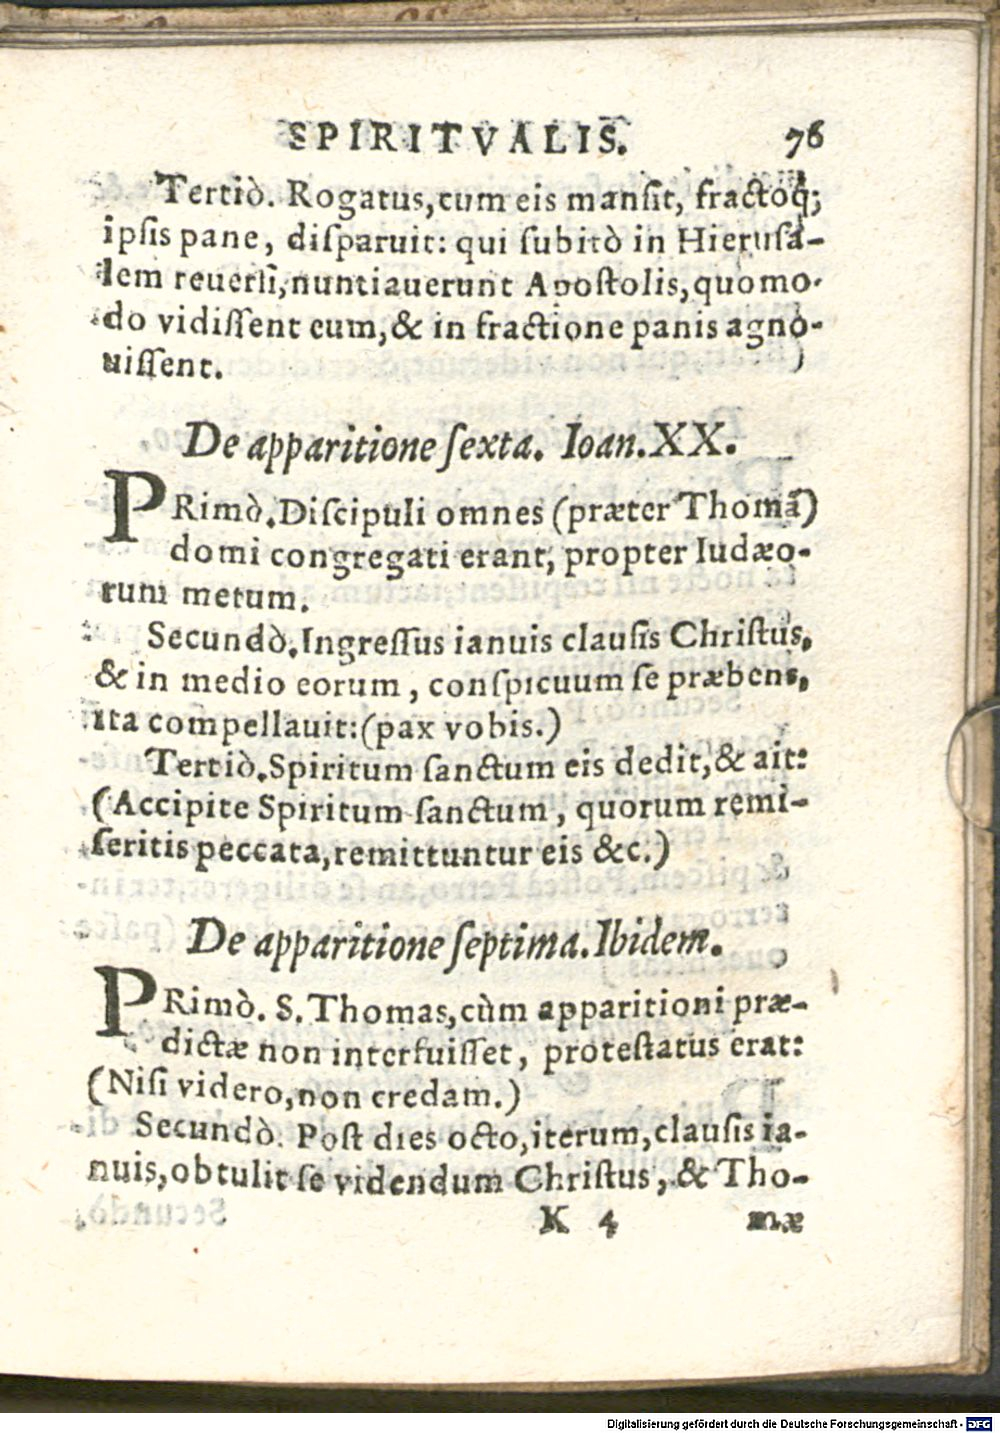 SPIRITVALIS. 76
Tertiò. Rogatus, cum eis mansit, fractoq́;
ipsis pane, disparuit: qui subitò in Hierusa-
lem reuersi, nuntiauerunt Apostolis, quomo-
do vidissent eum, & in fractione panis agno-
uissent.
De apparitione sexta. Ioan. XX.
PRimò. Discipuli omnes (præter Thomã)
domi congregati erant, propter Iudæo-
rum metum.
Secundò. Ingressus ianuis clausis Christus,
& in medio eorum, conspicuum se præbens,
ita compellauit: (pax vobis.)
Tertiò. Spiritum sanctum eis dedit, & ait:
(Accipite Spiritum sanctum, quorum remi-
seritis peccata, remittuntur eis &c.)
De apparitione septima. Ibidem.
PRimò. S. Thomas, cùm apparitioni præ-
dictæ non interfuisset, protestatus erat:
(Nisi videro, non credam.)
Secundò. Post dies octo, iterum, clausis ia-
nuis, obtulit se videndum Christus, & Tho-
K 4 mæ
Digitalisierung gefördert durch die Deutsche Forschungsgemeinschaft - DFG